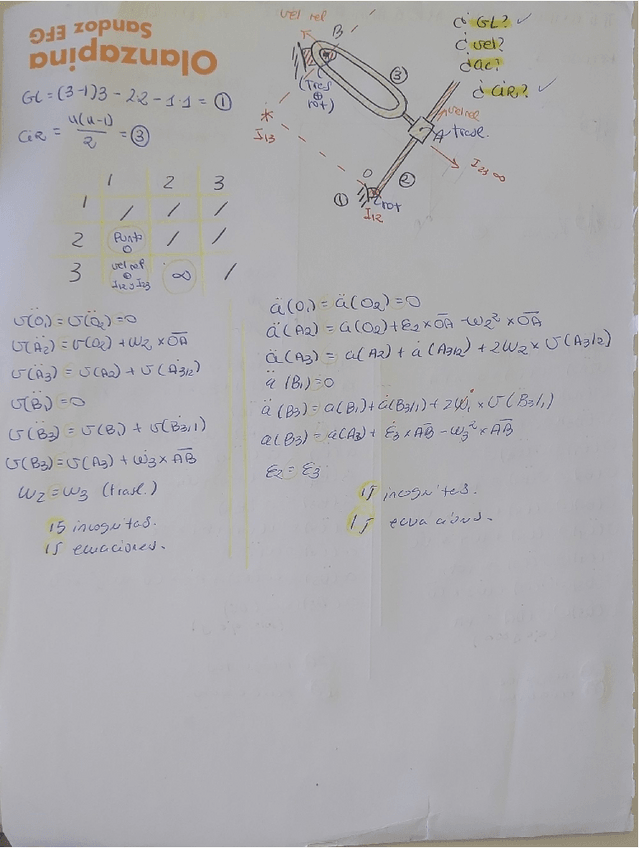 Olanzapina
Sandoz EFG
GL = (3-1)3 - 2·2 - 1·1 = ①
CIR = n(n-1)/2 = ③
vel rel
B
(Tres ⊕ rot)
③
I13
vel rel
A trasl.
I23 ∞
O
②
①
rot
I12
¿ GL? ✓
¿ vel?
¿ ac?
¿ CIR? ✓
1 2 3
1 / / /
2 Punto O / /
3 vel rel ⊕ I12 y I23 ∞ /
v(O1) = v(O2) = 0
v(A2) = v(O2) + ω2 × OA
v(A3) = v(A2) + v(A3/2)
v(B1) = 0
v(B3) = v(B1) + v(B3/1)
v(B3) = v(A3) + ω3 × AB
ω2 = ω3 (trasl.)
15 incognitas.
15 ecuaciones.
a(O1) = a(O2) = 0
a(A2) = a(O2) + ε2 × OA - ω2² × OA
a(A3) = a(A2) + a(A3/2) + 2ω2 × v(A3/2)
a(B1) = 0
a(B3) = a(B1) + a(B3/1) + 2ω1 × v(B3/1)
a(B3) = a(A3) + ε3 × AB - ω3² × AB
ε2 = ε3
15 incognitas.
15 ecuaciones.